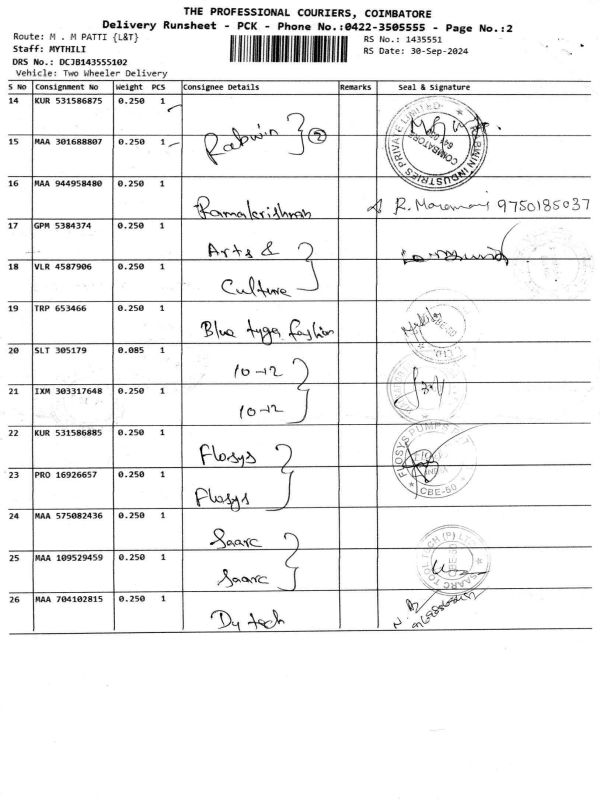 THE PROFESSIONAL COURIERS, COIMBATORE
Delivery Runsheet - PCK - Phone No.:0422-3505555 - Page No.:2
Route: M . M PATTI {L&T}
RS No.: 1435551
Staff: MYTHILI
RS Date: 30-Sep-2024
DRS No.: DCJB143555102
Vehicle: Two Wheeler Delivery
S No Consignment No Weight PCS Consignee Details Remarks Seal & Signature
14 KUR 531586875 0.250 1
Rabwin 2
15 MAA 301688807 0.250 1
RABWIN INDUSTRIES PRIVATE LIMITED
COIMBATORE
16 MAA 944958480 0.250 1
Ramakrishnan R. 9750185037
17 GPM 5384374 0.250 1
Arts &
18 VLR 4587906 0.250 1
Culture
19 TRP 653466 0.250 1
Blue tyga fashion
CBE-50
20 SLT 305179 0.085 1
10-12
21 IXM 303317648 0.250 1
10-12
22 KUR 531586885 0.250 1
Flosys
FLOSYS PUMPS
CBE-50
23 PRO 16926657 0.250 1
Flosys
24 MAA 575082436 0.250 1
Saarc
25 MAA 109529459 0.250 1
Saarc
SAARC TOOL TECH (P) LTD
CBE-50
26 MAA 704102815 0.250 1
Dy tech